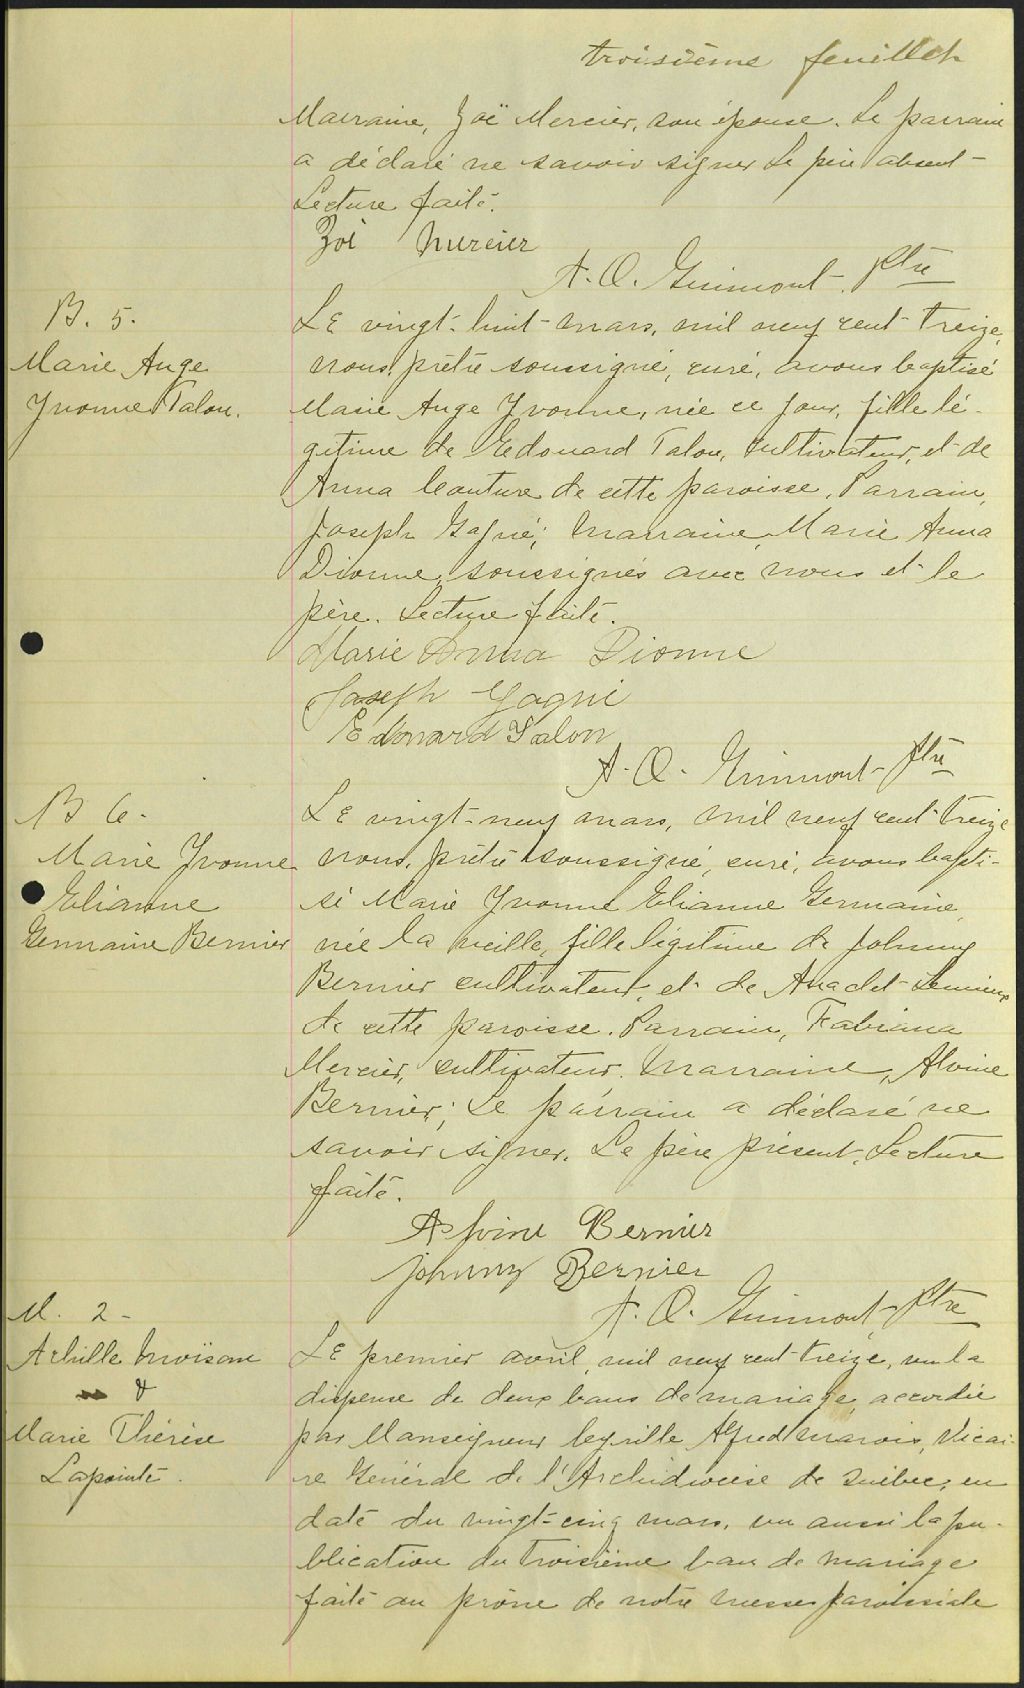 troisième feuillet
Marraine, Zoë Mercier, son épouse. Le parrain
a déclaré ne savoir signer Le père absent-
Lecture faite.
Zoé Mercier
A. O. Guimont, Ptre
B. 5.
Marie Ange
Yvonne Talon.
Le vingt-huit mars, mil neuf cent treize,
nous, prêtre soussigné, curé, avons baptisé
Marie Ange Yvonne, née ce jour, fille lé-
gitime de Edouard Talon, cultivateur, et de
Anna Couture de cette paroisse. Parrain,
Joseph Gagné; marraine, Marie Anna
Dionne, soussignés avec nous et le
père. Lecture faite.
Marie Anna Dionne
Joseph Gagné
Edouard Talon
A. O. Guimont- Ptre
B 6-
Marie Yvonne
Elianne
Germaine Bernier
Le vingt-neuf mars, mil neuf cent treize
nous, prêtre soussigné, curé, avons bapti-
sé Marie Yvonne Elianne Germaine,
née la veille, fille légitime de Johnny
Bernier cultivateur, et de Anaclet Lemieux
de cette paroisse. Parrain, Fabiana
Mercier, cultivateur. Marraine, Alvine
Bernier; Le parrain a déclaré ne
savoir signer. Le père présent. Lecture
faite.
Bernier
Johnny Bernier
A. O. Guimont, Ptre
M. 2-
Achille Moïsan
&
Marie Thérèse
Lapointe.
Le premier avril, mil neuf cent treize, vu la
dispense de deux bans de mariage, accordée
par Monseigneur Cyrille Alfred Marois, Vicai-
re Général de l'Archidiocèse de Québec, en
date du vingt-cinq mars, vu aussi la pu-
blication du troisième ban de mariage
faite au prône de notre messe paroissiale